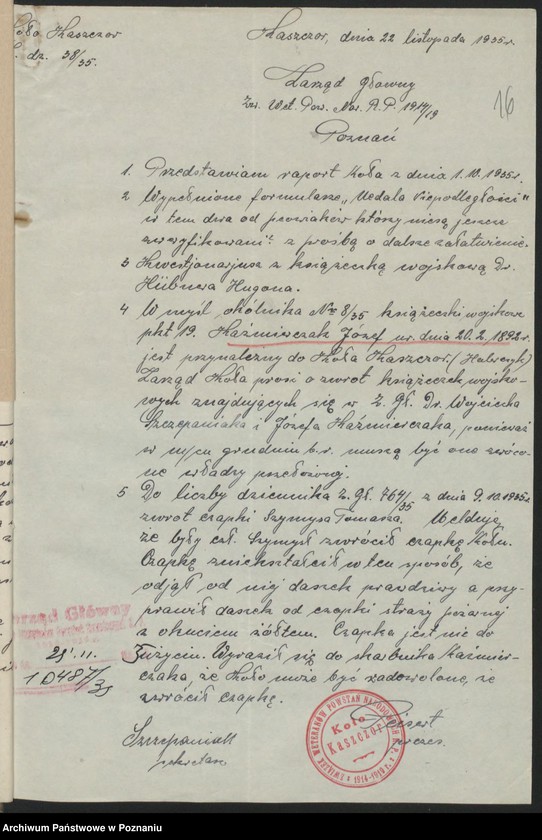 Koła Kaszczor
L. dz. 38/35.
Kaszczor, dnia 22 listopada 1935 r.
16
Zarząd Główny
Zw. Wet. Pow. Nar. R. P. 1914/19
Poznań
1. Przedstawiam raport Koła z dnia 1.10.1935 r.
2 Wypełnione formularze „Medala Niepodległości"
w tem dwa od peowiaków którzy nie są jeszcze
zweryfikowani z prośbą o dalsze załatwienie.
3 Kwestjonarjusz z książeczką wojskową Dr.
Hübnera Hugona.
4 W myśl okólnika No 8/35 książeczki wojskowe
pkt 19. Kaźmierczak Józef ur. dnia 20.2.1892 r.
jest przynależny do Koła Kaszczor.
Zarząd Koła prosi o zwrot książeczek wojsko-
wych znajdujących się w Z. Gł. Dr. Wojciecha
Szczepaniaka i Józefa Kaźmierczaka, ponieważ
w m/cu grudniu b.r. muszą być one zwróco-
ne władzy przełożonej.
5 Do liczby dziennika Z. Gł. 764/35 z dnia 9.10.1935 r.
zwrot czapki Szymysa Tomasza. Melduję
że były czł. Szymyś zwrócił czapkę Kołu.
Czapkę zniekształcił w ten sposób, że
odjął od niej daszek prawdziwy a przy-
prawił daszek od czapki straży pożarnej
z okuciem żółtem. Czapka jest nie do
użyciu. Wyraził się do skarbnika Kaźmier-
czaka, że Koło może być zadowolone, że
zwrócił czapkę.
Zarząd Główny
29. 11.
10487/35
Szczepaniak
sekretarz
ZWIĄZEK WETERANÓW POWSTAŃ NARODOWYCH R.P. 1914-1919
Koło
Kaszczor
prezes.
Archiwum Państwowe w Poznaniu